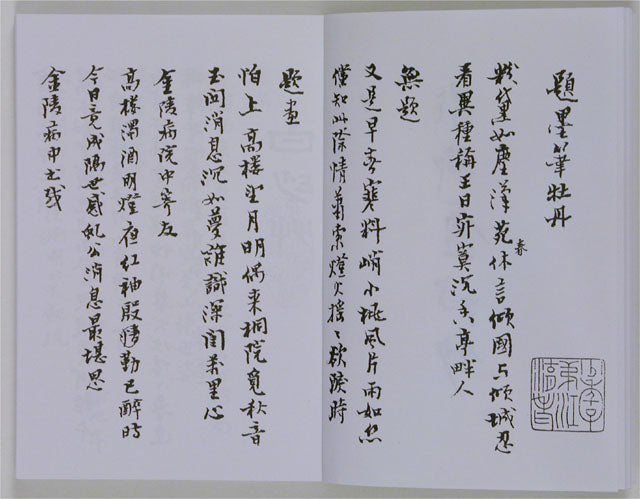 題墨筆牡丹
粉黛如塵漢苑春休言傾國与傾城忍
看異種稱王日寂寞沉香亭畔人
無題
又是早春寒料峭小桃風片雨如絲
僅知此際情蕭索燈火搖〻欲時
題畫
怕上高樓望月明偶來桐院覓秋音
玉関消息沉如夢誰識深閨萬里心
金陵病院中寄友
高樓濁酒明燈夜紅袖殷勤已醉時
今日竟成隔世感虬公消息最堪思
金陵病中
少年子弟江湖老